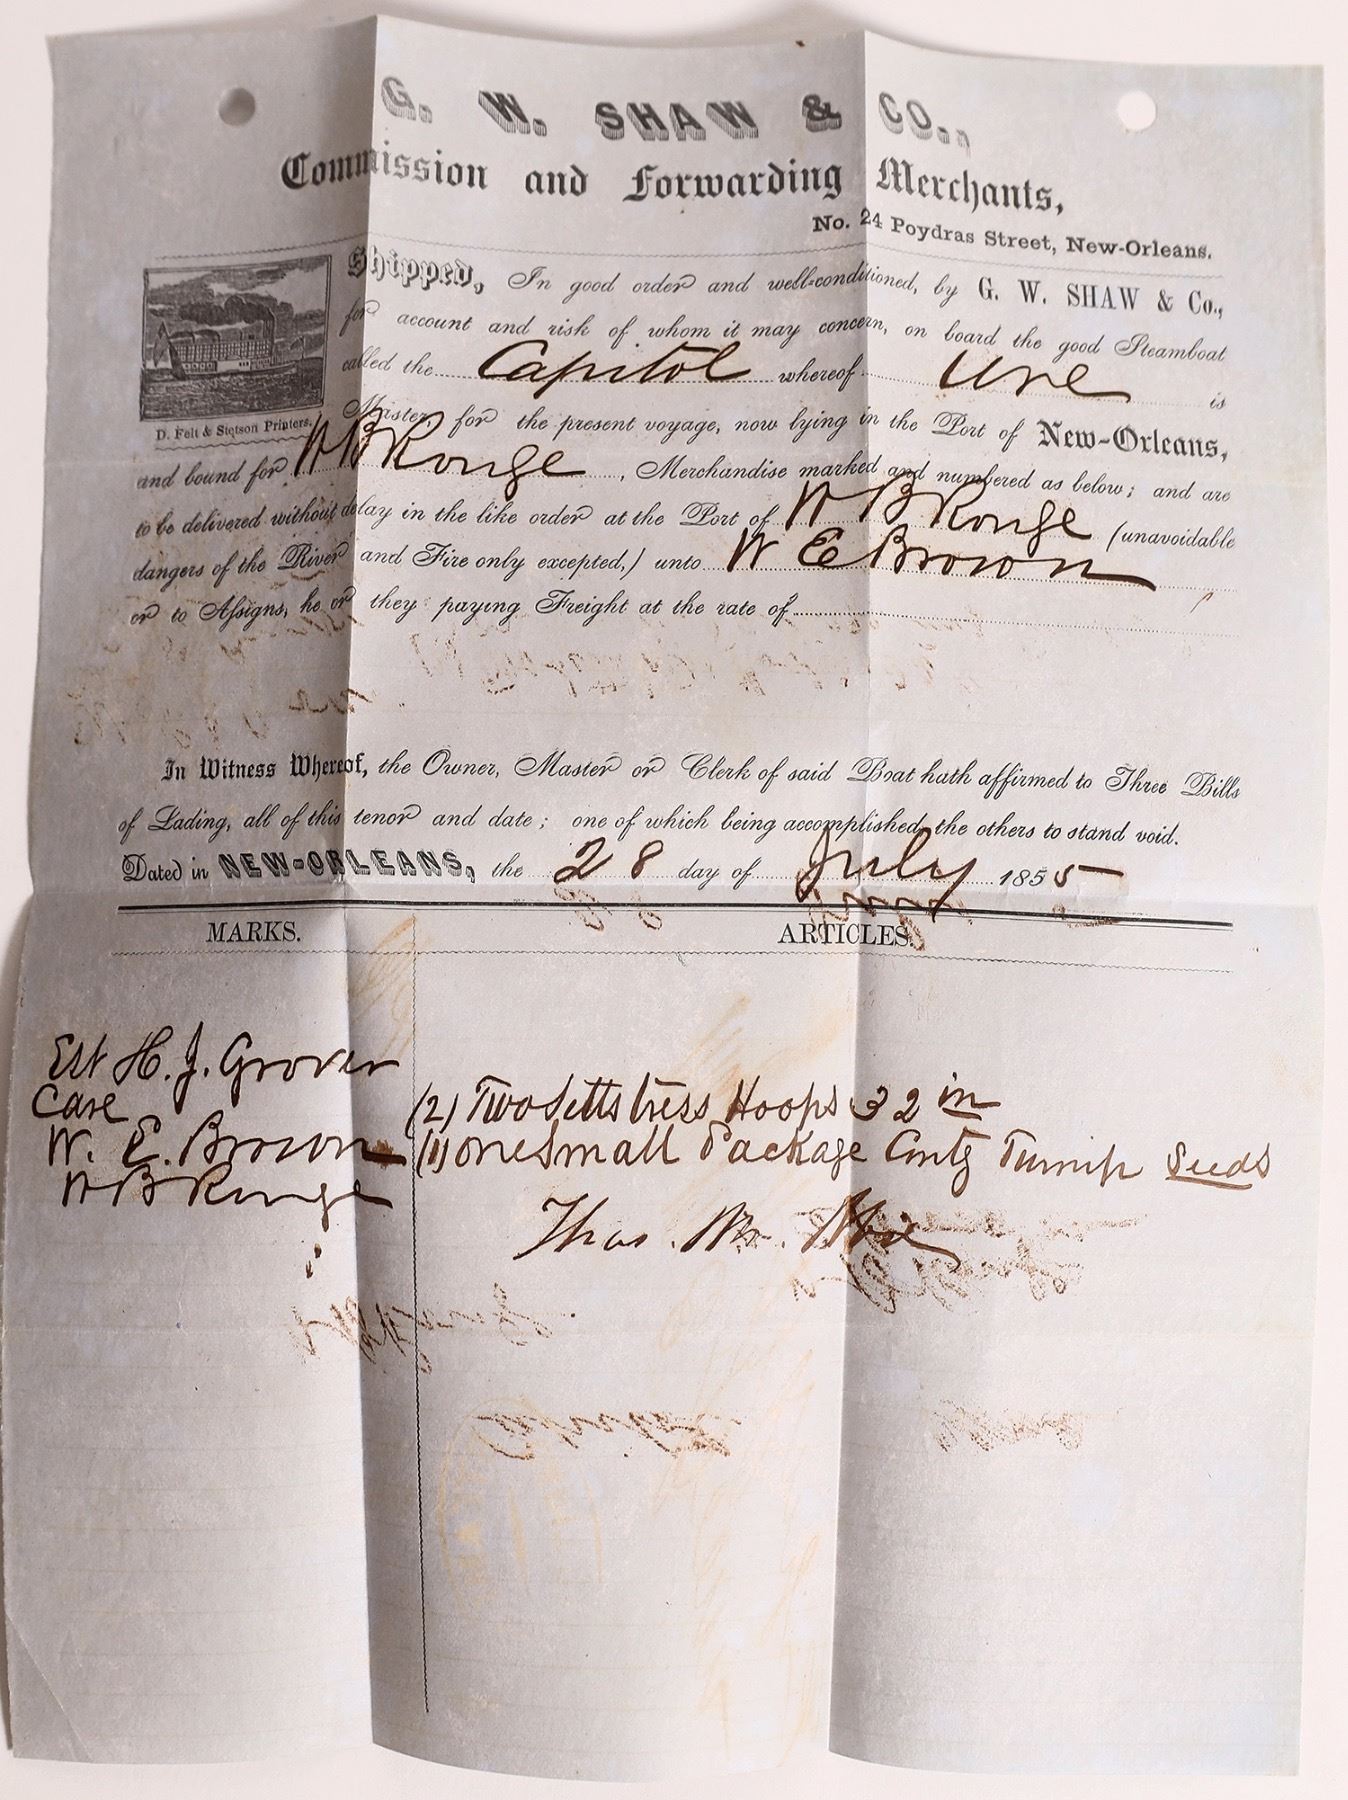 G. W. SHAW & CO.,
Commission and Forwarding Merchants,
No. 24 Poydras Street, New-Orleans.
Shipped, In good order and well-conditioned, by G. W. SHAW & Co.,
for account and risk of whom it may concern, on board the good Steamboat
called the Capitol whereof Ure is
D. Felt & Stetson Printers.
Master, for the present voyage, now lying in the Port of New-Orleans,
and bound for W B Rouge, Merchandise marked and numbered as below; and are
to be delivered without delay in the like order at the Port of W B Rouge (unavoidable
dangers of the River and Fire only excepted,) unto W E Brown
or to Assigns, he or they paying Freight at the rate of
In Witness Whereof, the Owner, Master or Clerk of said Boat hath affirmed to Three Bills
of Lading, all of this tenor and date; one of which being accomplished, the others to stand void.
Dated in NEW-ORLEANS, the 28 day of July 1855
MARKS. ARTICLES.
Est H. J. Grover
Care (2) Two Setts tress Hoops 32 in
W. E. Brown (1) one Small Package Contg Turnip Seeds
W B Rouge
Thos. W.